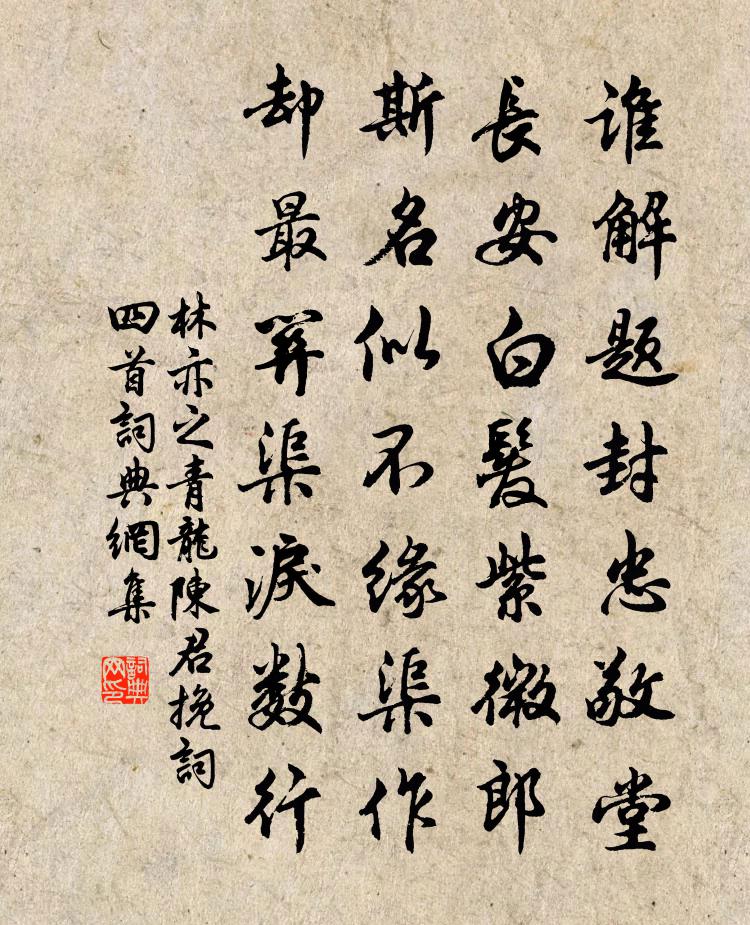 谁解题封忠敬堂
長安白髮紫微郎
斯名似不缘渠作
却最渠淚數行
林亦之青龍陳君挽詞
四首詞典網集
詞典
网印